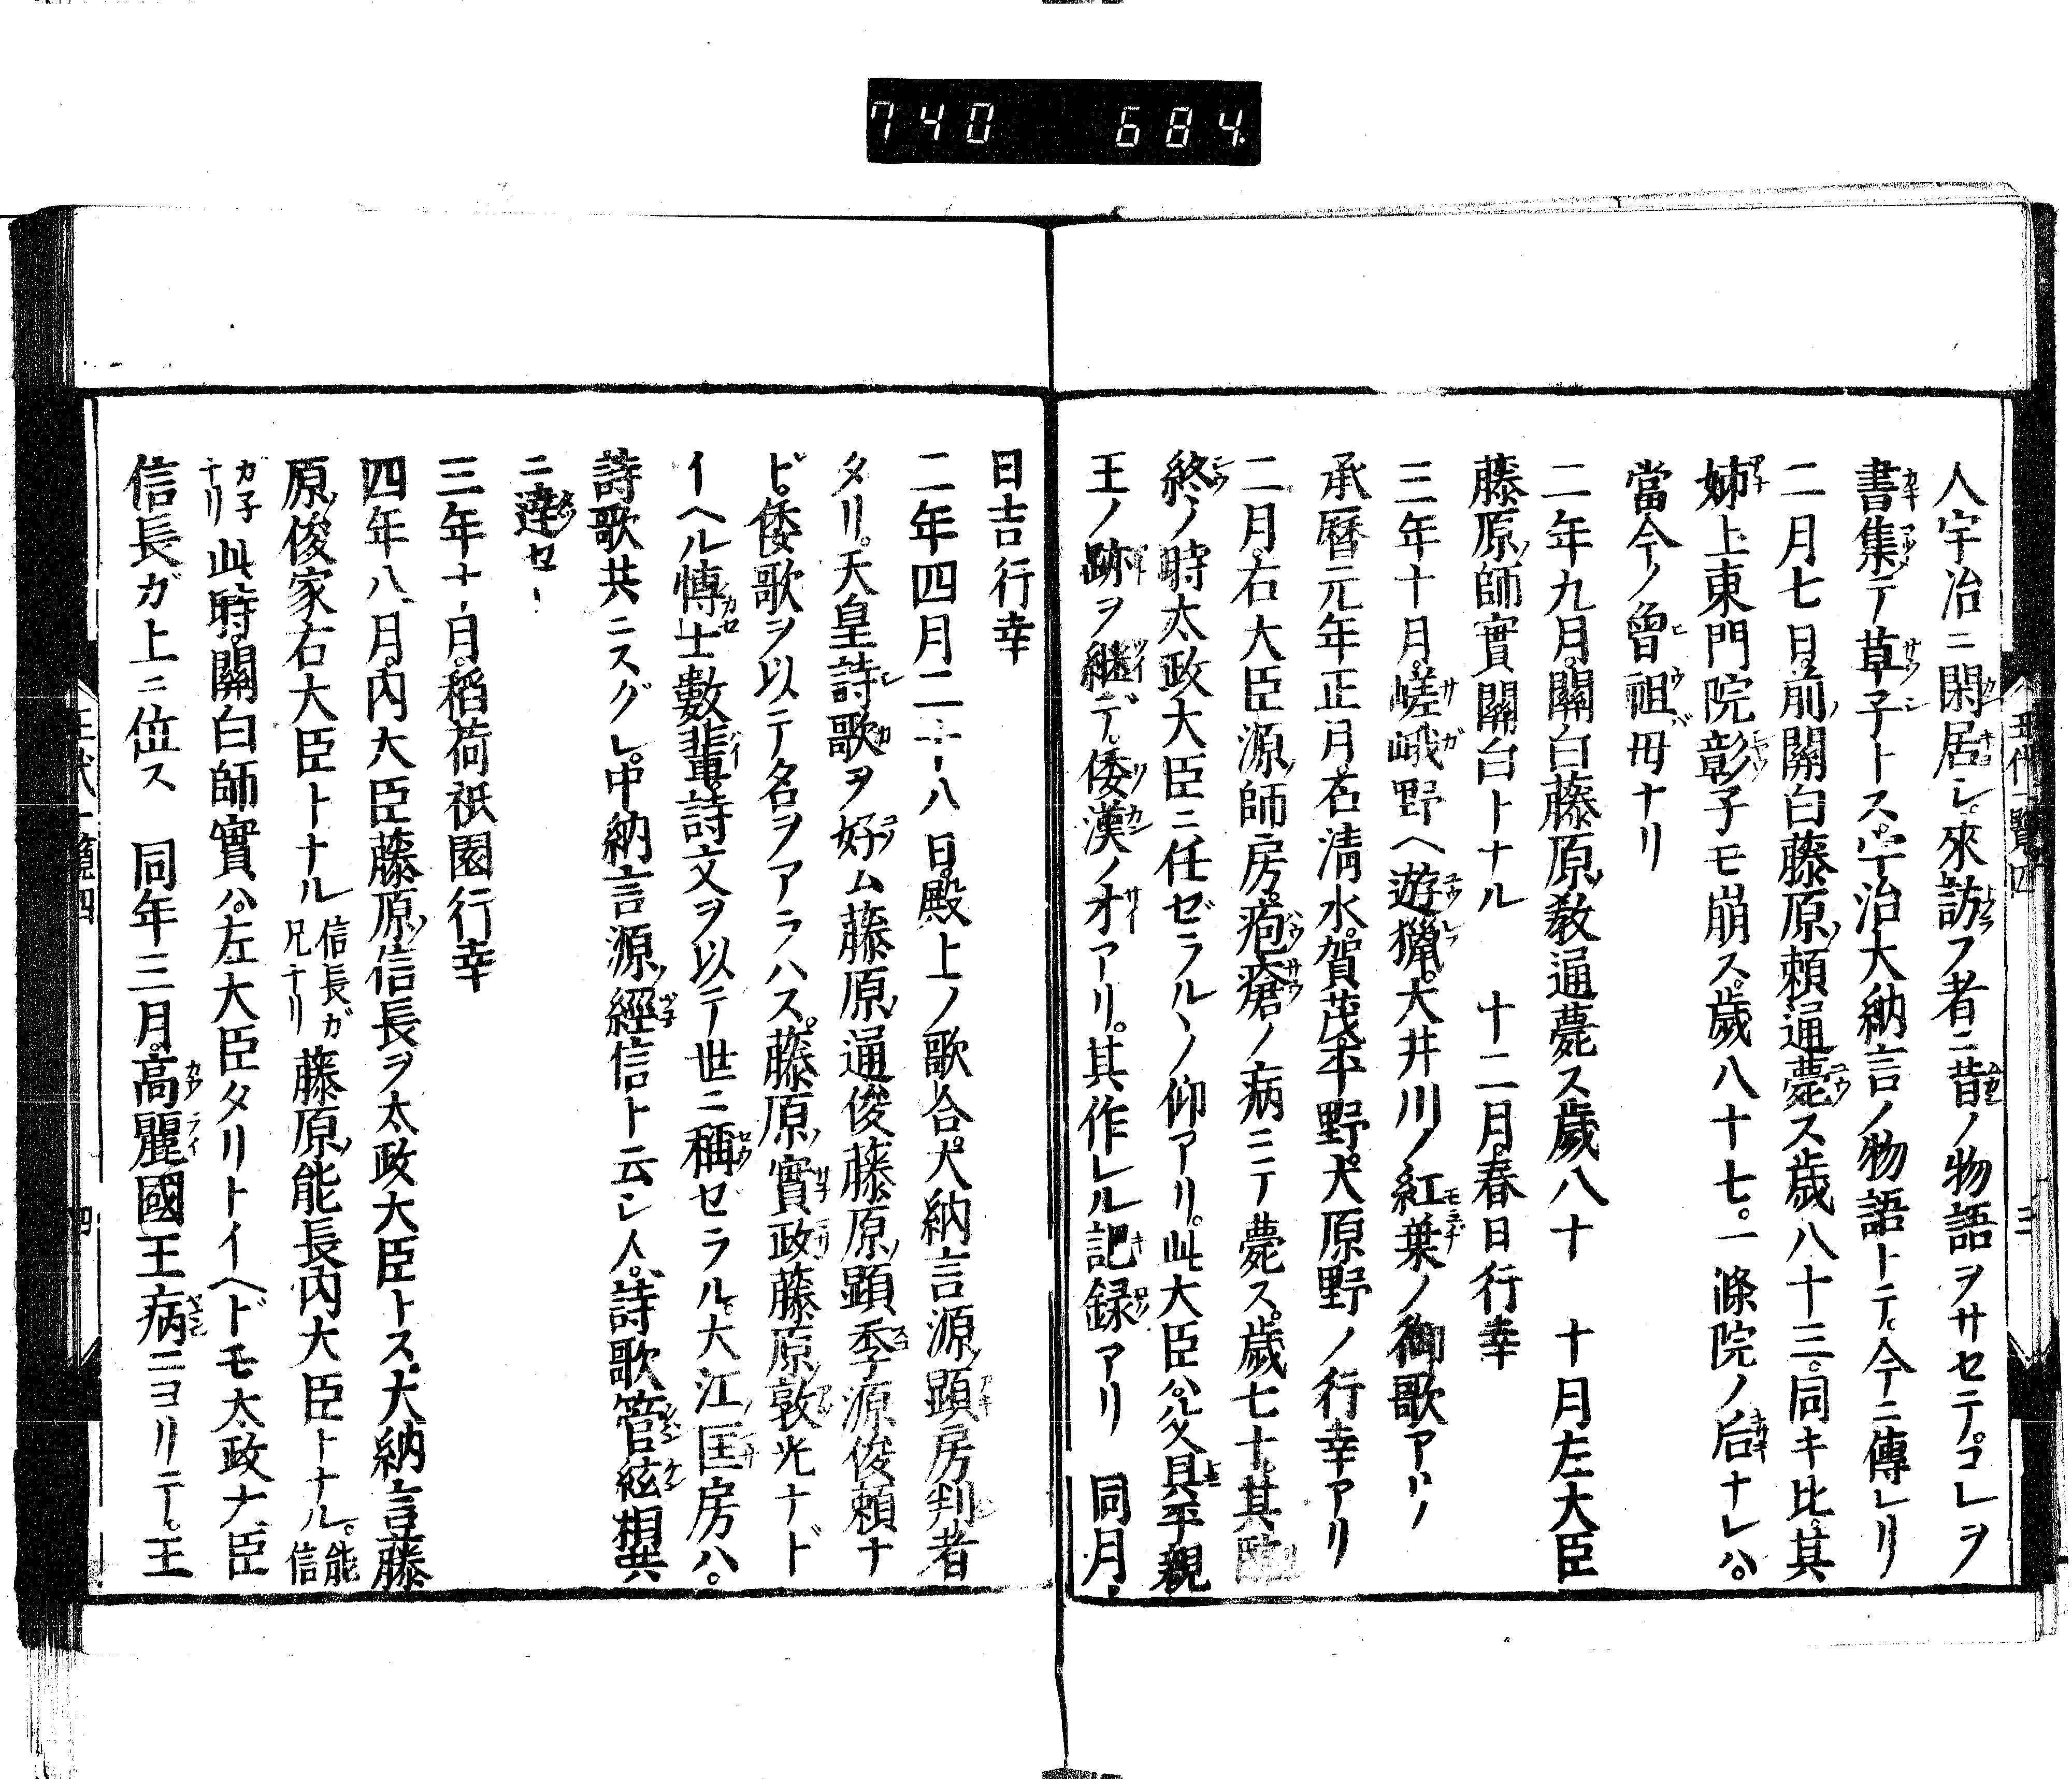 740 684
人宇治ニ閑居シ。來訪フ者ニ昔ノ物語ヲサセテ。コレヲ
書集テ草子トス。宇治大納言ノ物語トテ。今ニ傳レリ
二月七日。前ノ關白藤原ノ頼通薨ス歲八十三。同キ比。其
姊上東門院彰子モ崩ス。歲八十七。一條院ノ后ナレハ。
當今ノ曾祖母ナリ
二年九月。關白藤原ノ教通薨ス歲八十 十月左大臣
藤原ノ師實關白トナル 十二月。春日行幸
三年十月。嵯峨野ヘ遊獵。大井川ノ紅葉ノ御歌アリ
承曆元年正月。石清水。賀茂。平野。大原野ノ行幸アリ
二月。右大臣源ノ師房。疱瘡ノ病ニテ薨ス。歲七十。其臨
終ノ時太政大臣ニ任ゼラルヽノ仰アリ。此大臣ハ。父具平親
王ノ跡ヲ繼デ。倭漢ノオアリ。其作レル記録アリ 同月。
日吉行幸
二年四月二十八日。殿上ノ歌合。大納言源ノ顕房判者
タリ。天皇詩歌ヲ好ム藤原ノ通俊藤原ノ顕季源俊頼ナ
ド。倭歌ヲ以テ名ヲアラハス。藤原ノ實政藤原ノ敦光ナド
イヘル博士數輩。詩文ヲ以テ世ニ稱ゼラル。大江ノ匡房ハ。
詩歌共ニスグレ。中納言源ノ經信ト云シ人。詩歌管絃相共
ニ達セリ
三年十月。稻荷祇園行幸
四年八月。內大臣藤原ノ信長ヲ太政大臣トス。大納言藤
原ノ俊家右大臣トナル 信長ガ兄ナリ 藤原ノ能長內大臣トナル。能信
ガ子ナリ 此時。關白師實ハ。左大臣タリトイヘドモ太政大臣
信長ガ上ニ位ス 同年三月。高麗國王病ニヨリテ。王
王代一覽四 三
王代一覽四 四